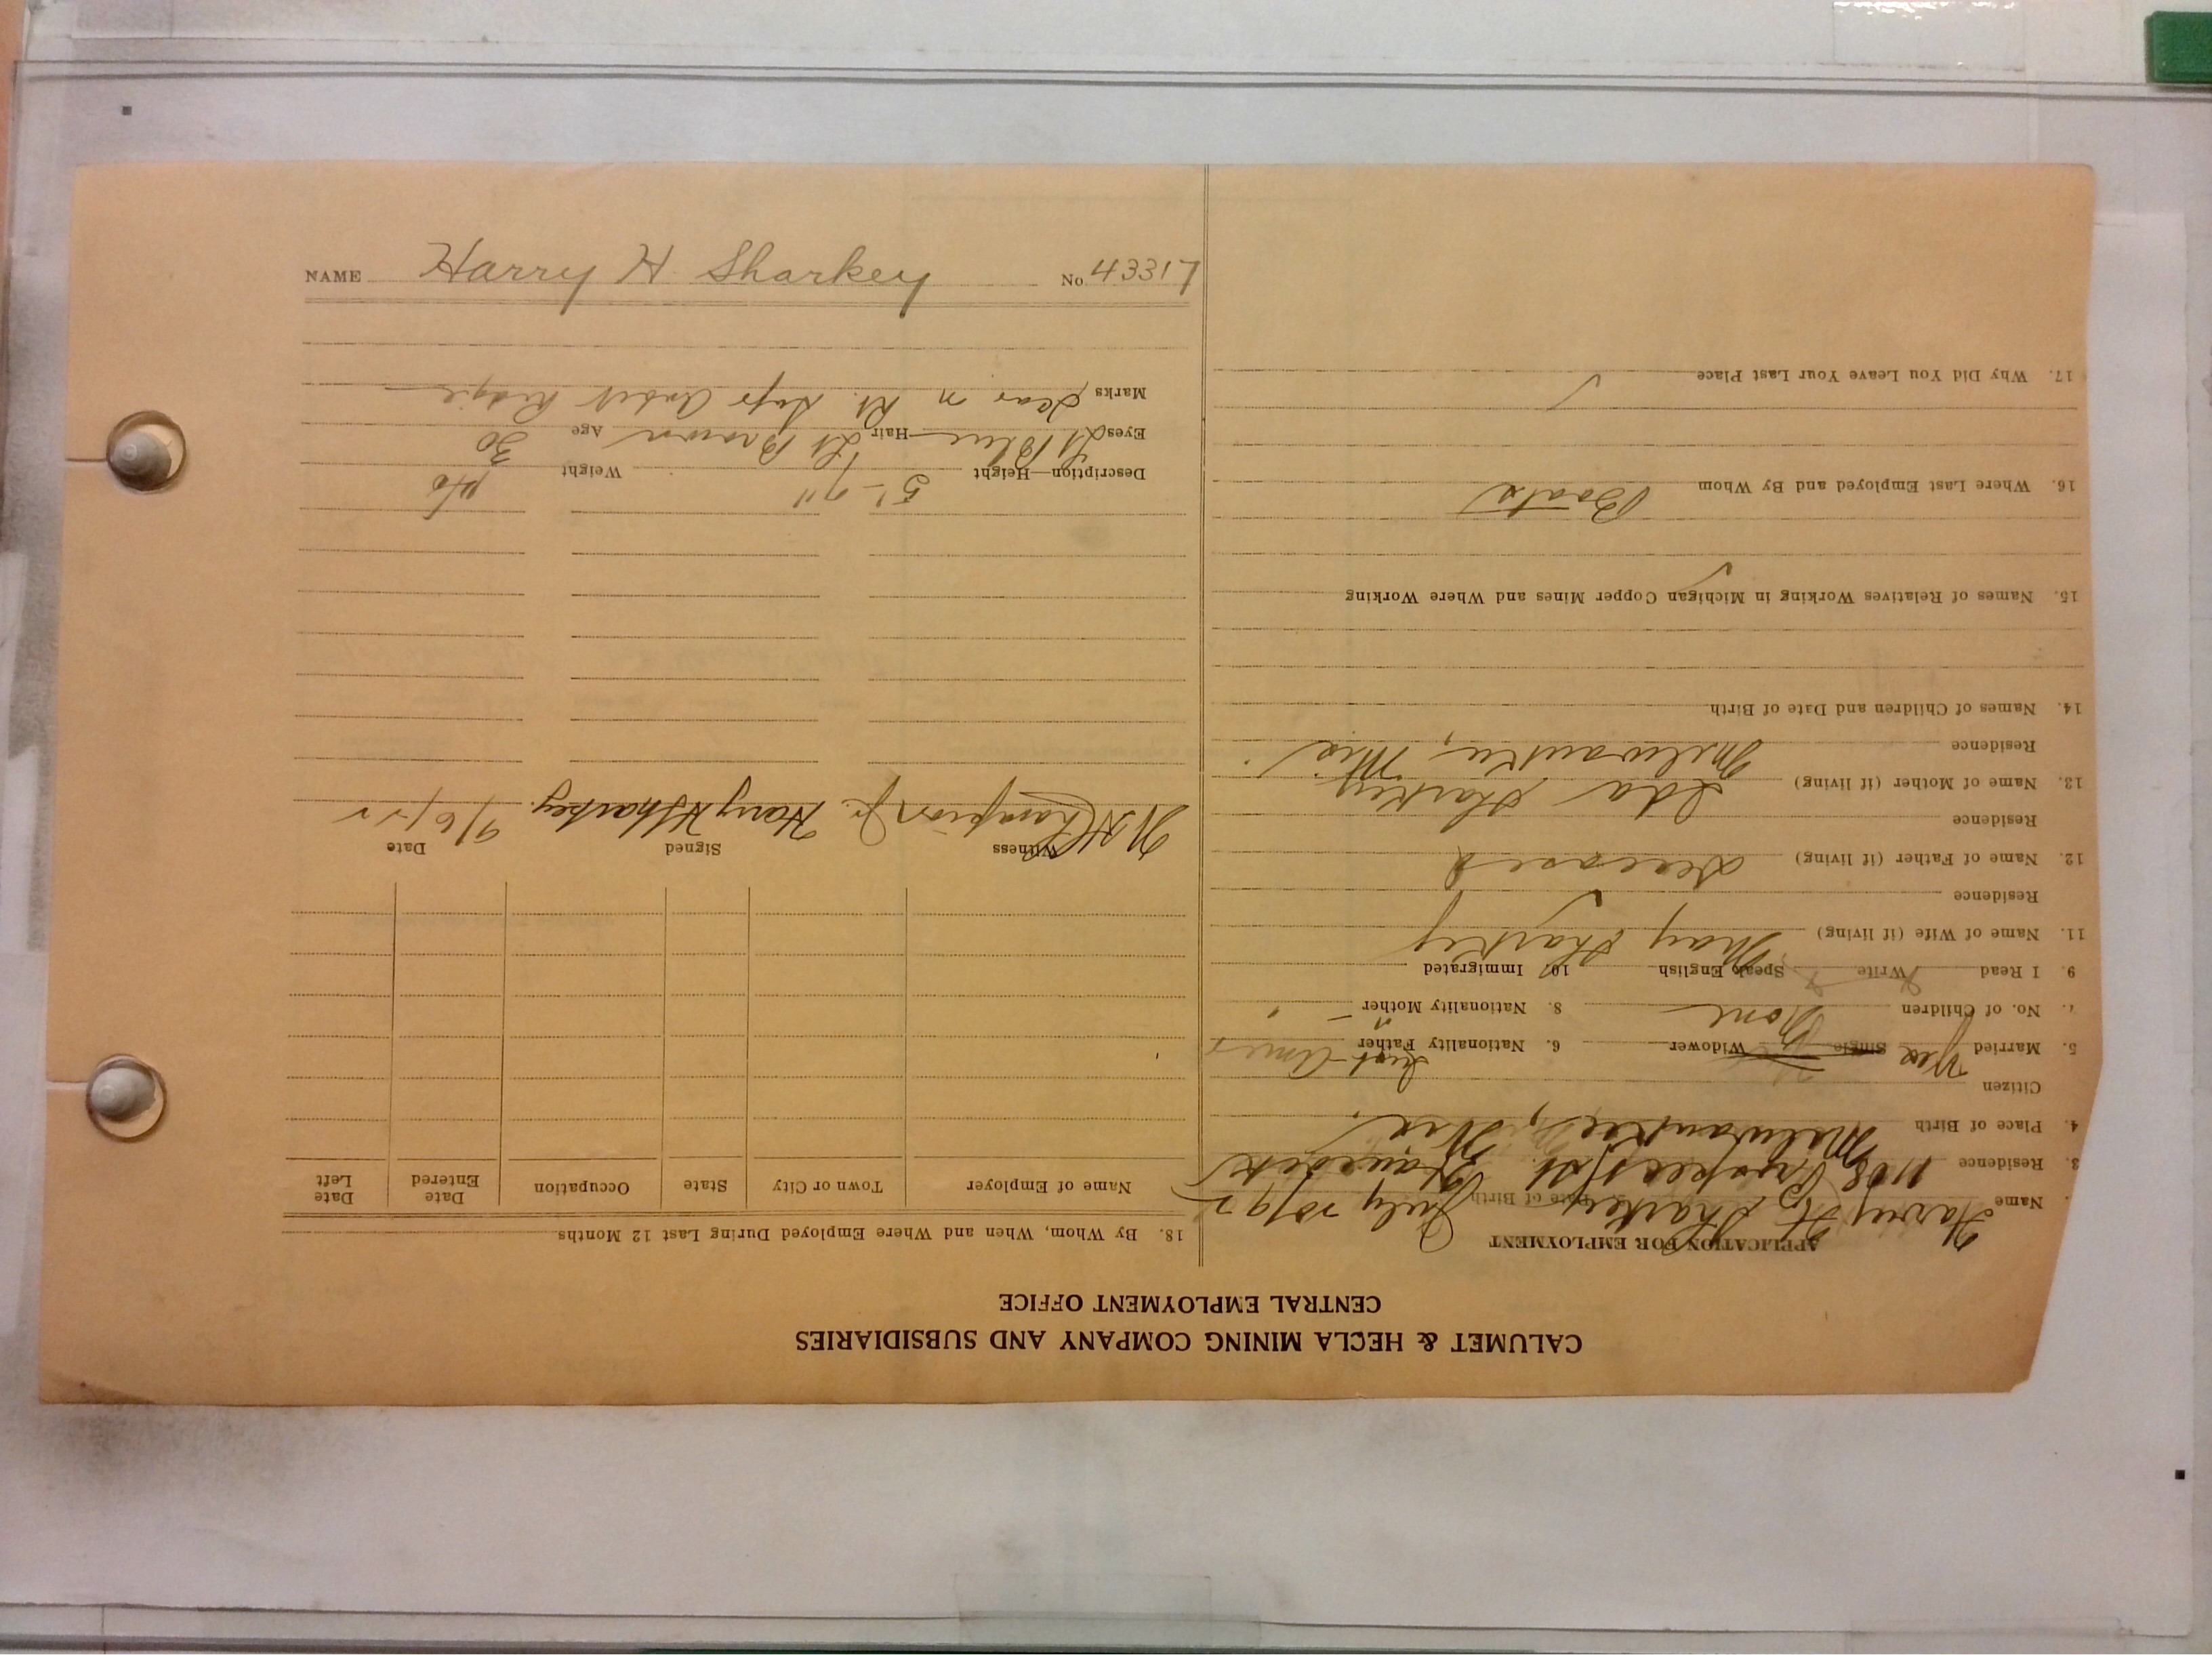 NAME Harry H. Sharkey No. 43317
CALUMET & HECLA MINING COMPANY AND SUBSIDIARIES
CENTRAL EMPLOYMENT OFFICE
APPLICATION FOR EMPLOYMENT
Name Harry H. Sharkey 2. Date of Birth July 20/92
3. Residence 1108 St. Hancock
4. Place of Birth Milwaukee, Wis.
Citizen
5. Married Yes Single Widower 6. Nationality Father Amer
7. No. of Children None 8. Nationality Mother " "
9. I Read Write Speak English 10. Immigrated
11. Name of Wife (if living) May Sharkey
Residence ✓
12. Name of Father (if living) deceased
Residence
13. Name of Mother (if living) Ida Sharkey
Residence Milwaukee, Wis.
14. Names of Children and Date of Birth
15. Names of Relatives Working in Michigan Copper Mines and Where Working
✓
16. Where Last Employed and By Whom Boats
17. Why Did You Leave Your Last Place ✓
18. By Whom, When and Where Employed During Last 12 Months
Name of Employer Town or City State Occupation Date Entered Date Left
Witness Signed Date
Champion Jr. Harry H Sharkey. 9/6/22
Description—Height 5'-7" Weight 140
Eyes Lt Blue Hair Lt Brown Age 30
Marks Scar on Rt. Ridge